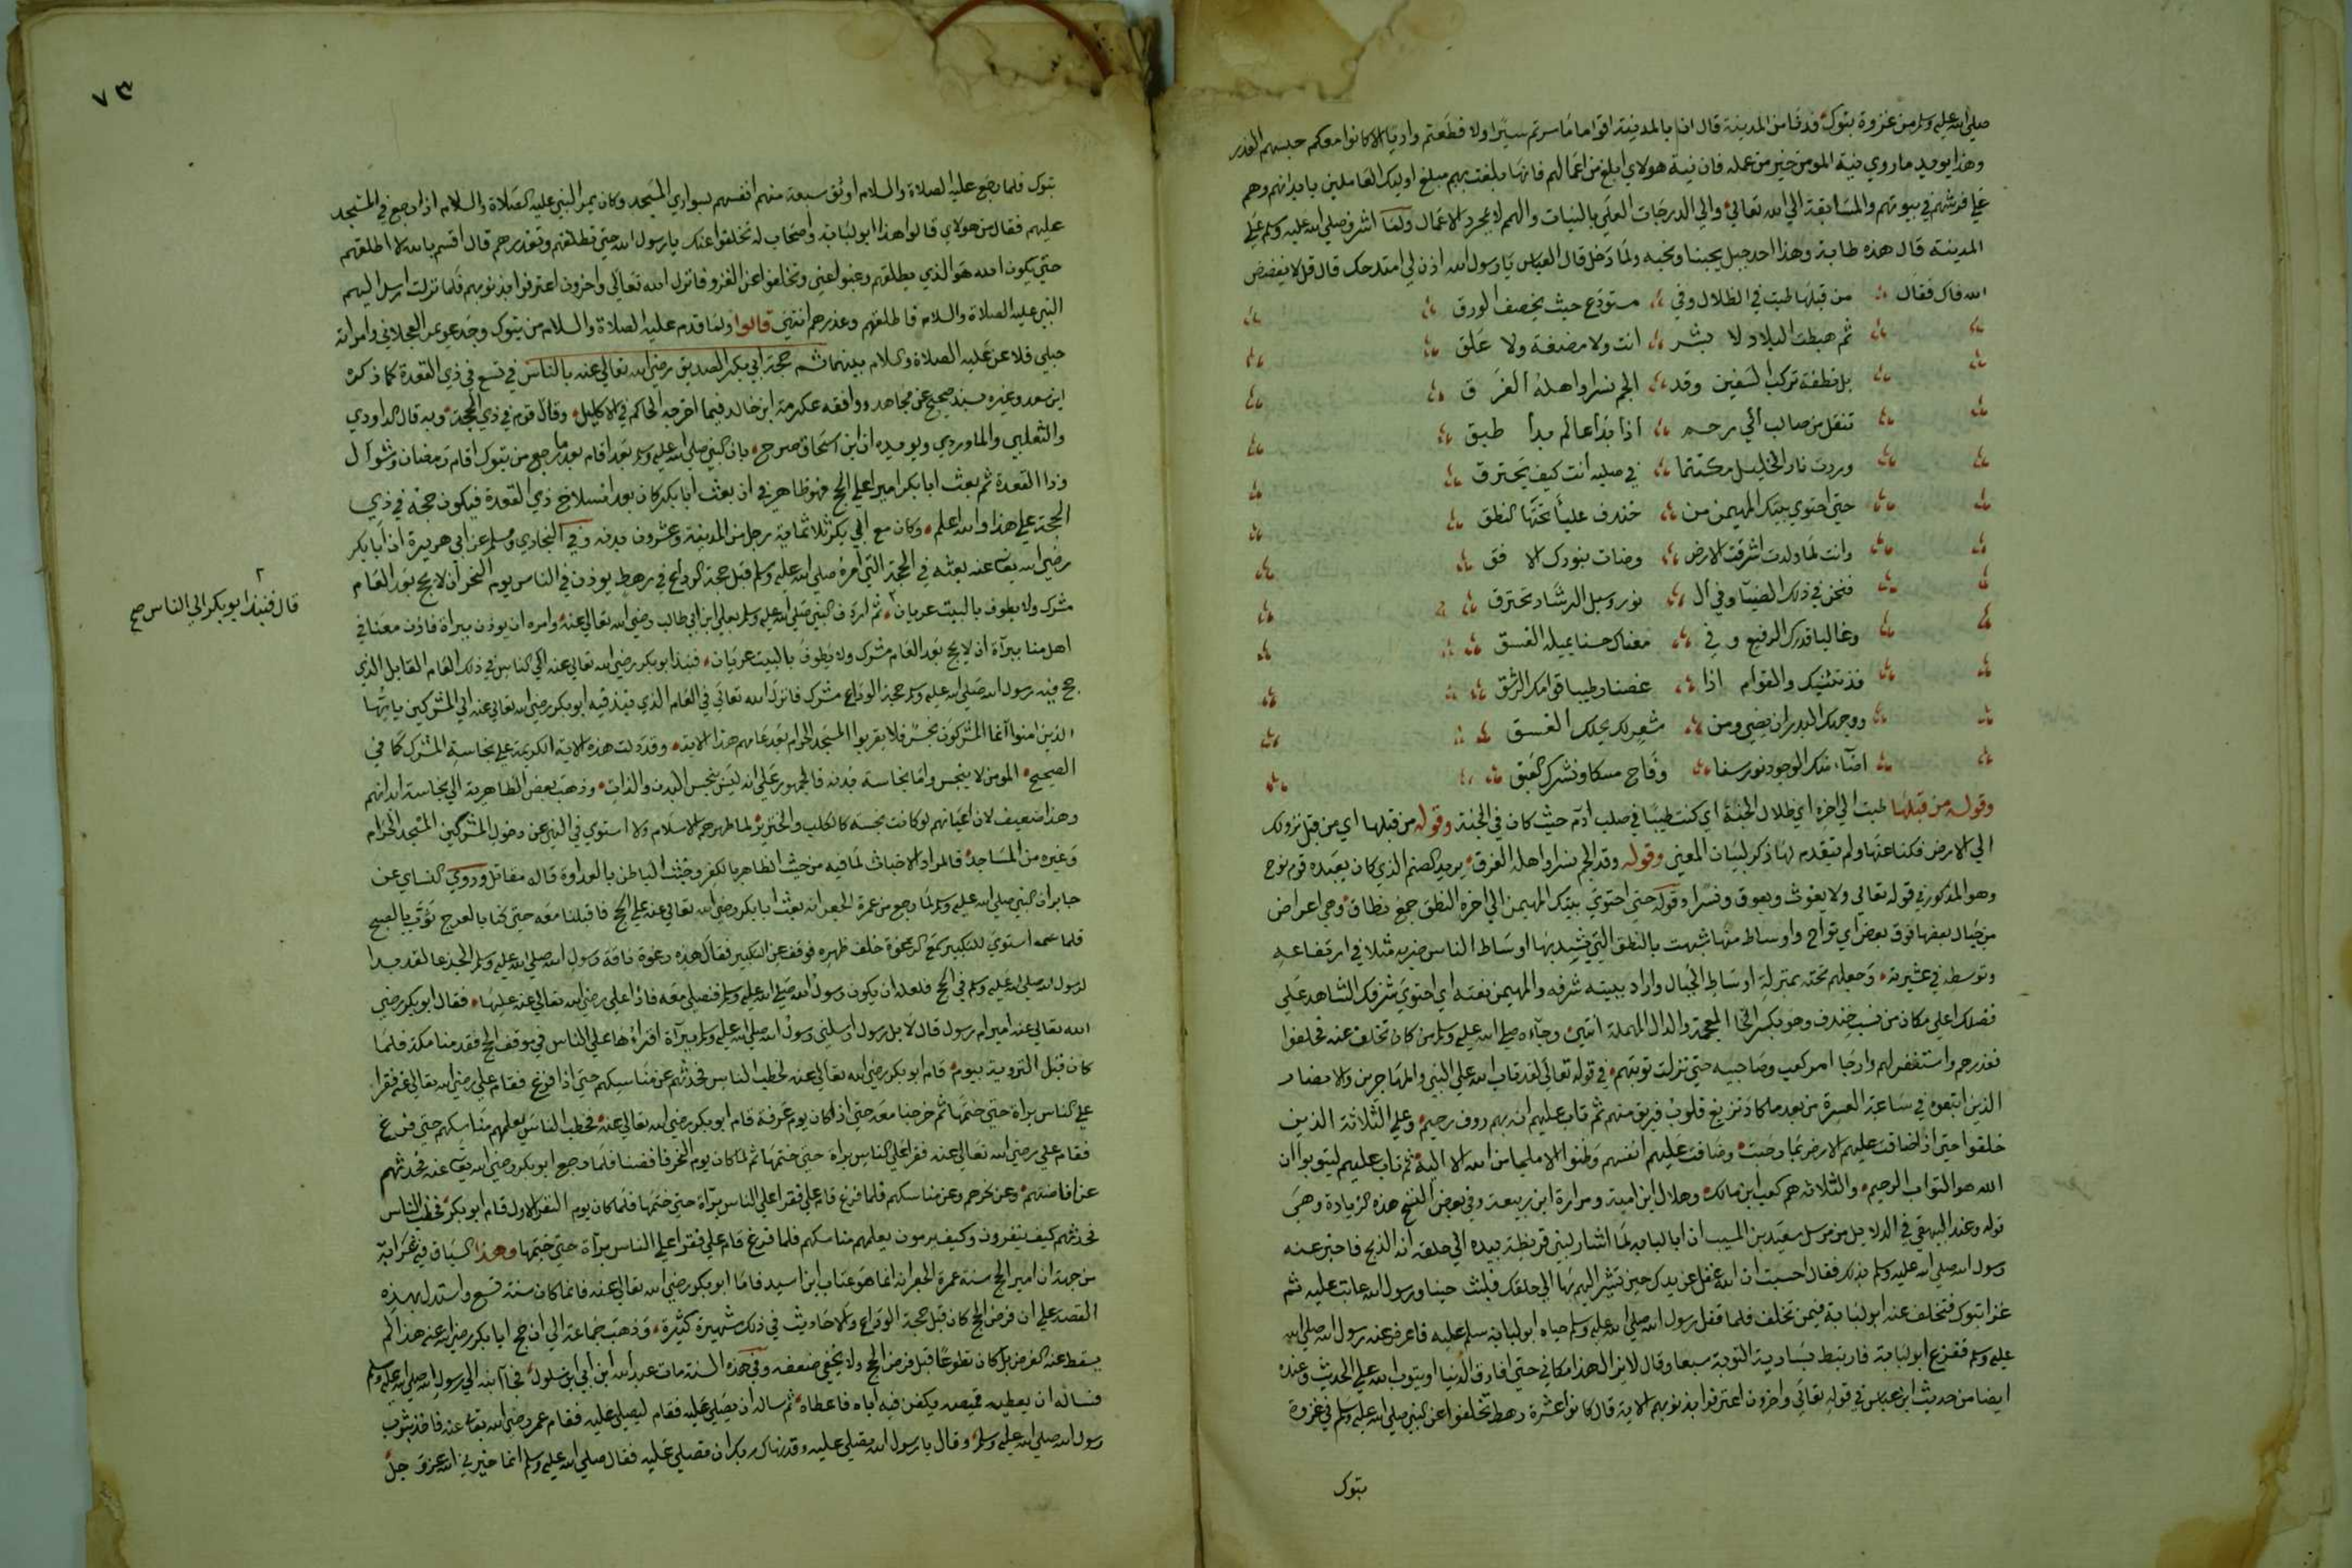 صلي الله عليه وسلم من غزوة تبوك ودنا من المدينة قال ان بالمدينة اقواما ما سرتم سيرا ولا قطعتم واديا الا كانوا معكم حبسهم العذر
وهذا يويد ما روي نية المومن خير من عمله فان نية هولاي ابلغ من اعمالهم فانها بلغت بهم مبلغ اوليك العاملين بابدانهم وهم
علي فرشهم في بيوتهم والمسابقة الي الله تعالي والي الدرجات العلي بالنيات والهمم لا بمجرد الاعمال ولما اشرف صلي الله عليه وسلم علي
المدينة قال هذه طابة وهذا احد جبل يحبنا ونحبه ولما دخل قال العباس يا رسول الله اذن لي امتدحك قال قل لا يفضض
الله فاك فقال من قبلها طبت في الظلال وفي مستودع حيث يخصف الورق
ثم هبطت البلاد لا بشر انت ولا مضغة ولا علق
بل نطفة تركب السفين وقد الجم نسرا واهله الغرق
تنقل من صالب الي رحم اذا بدا عالم بدا طبق
وردت نار الخليل مكتتما في صلبه انت كيف يحترق
حتي احتوي بيتك المهيمن من خندف عليا تحتها النطق
وانت لما ولدت اشرقت الارض وضات بنورك الافق
فنحن في ذلك الضيا وفي ال نور وسبل الرشاد نخترق
وقوله من قبلها طبت الي اخره اي ظلال الجنة اي كنت طيبا في صلب ادم حيث كان في الجنة وقوله من قبلها اي من قبل نزولك
الي الارض فكنا عنها ولم يتقدم لها ذكر لبيان المعني وقوله وقد الجم نسرا واهله الغرق يريد الصنم الذي كان يعبده قوم نوح
وهو المذكور في قوله تعالي ولا يغوث ويعوق ونسرا وقوله حتي احتوي بيتك المهيمن الي اخره النطق جمع نطاق وهي اعراض
من جبال بعضها فوق بعض اي نواح واوساط منها شبهت بالنطق التي يشد بها اوساط الناس ضربه مثلا في ارتفاعه
وتوسطه في عشيرته وجعلهم تحته بمنزلة اوساط الجبال واراد ببيته شرفه والمهيمن نعته اي احتوي شرفك الشاهد علي
فضلك اعلي مكان من نسب خندف وهو بكسر الخا المعجمة والدال المهملة انتهي وجاءه صلي الله عليه وسلم من كان تخلف عنه فحلفوا
فعذرهم واستغفر لهم وارجا امر كعب وصاحبيه حتي نزلت توبتهم في قوله تعالي لقد تاب الله علي النبي والمهاجرين والانصار
الذين اتبعوه في ساعة العسرة من بعد ما كاد تزيغ قلوب فريق منهم ثم تاب عليهم انه بهم روف رحيم وعلي الثلاثة الذين
خلفوا حتي اذا ضاقت عليهم الارض بما رحبت وضاقت عليهم انفسهم وظنوا ان لا ملجا من الله الا اليه ثم تاب عليهم ليتوبوا ان
الله هو التواب الرحيم والثلاثة هم كعب ابن مالك وهلال ابن امية ومرارة ابن ربيعة وفي بعض النسخ هذه الزيادة وهي
قوله وعند البيهقي في الدلايل من مرسل سعيد بن المسيب ان ابا لبابه لما اشار لبني قريظة بيده الي حلقه انه الذبح فاخبر عنه
رسول الله صلي الله عليه وسلم بذلك فقال احسبت ان الله غفل عن يدك حين تشير اليهم بها الي حلقك فلبث حينا ورسول الله عاتب عليه ثم
غزا تبوك فتخلف عنه ابو لبابة فيمن تخلف فلما قفل رسول الله صلي الله عليه وسلم جاه ابو لبابة يسلم عليه فاعرض عنه رسول الله صلي الله
عليه وسلم ففزع ابو لبابة فارتبط بسارية التوبة سبعا وقال لا يزال هذا مكاني حتي افارق الدنيا او يتوب الله علي الحديث وعنده
ايضا من حديث ابن عباس في قوله تعالي واخرون اعترفوا بذنوبهم الاية قال كانوا عشرة رهط تخلفوا عن النبي صلي الله عليه وسلم في غزوة
تبوك
٧٣
تبوك فلما رجع عليه الصلاة والسلام اوثق سبعة منهم انفسهم بسواري المسجد وكان يمر النبي عليه الصلاة والسلام اذا رجع في المسجد
عليهم فقال من هولاي قالوا هذا ابو لبابة واصحاب له تخلفوا عنك يا رسول الله حتي تطلقهم وتعذرهم قال اقسم بالله لا اطلقهم
حتي يكون الله هو الذي يطلقهم رغبوا عني وتخلفوا عن الغزو فانزل الله تعالي واخرون اعترفوا بذنوبهم فلما نزلت ارسل اليهم
النبي عليه الصلاة والسلام فاطلقهم وعذرهم انتهي قالوا ولما قدم عليه الصلاة والسلام من تبوك وجد عويمر العجلاني وامراته
حبلي فلاعن عليه الصلاة والسلام بينهما ثم حجة ابي بكر الصديق رضي الله تعالي عنه بالناس في تسع في ذي القعدة كما ذكره
ابن سعد وغيره بسند صحيح عن مجاهد ووافقه عكرمة ابن خالد فيما اخرجه الحاكم في الاكليل وقال قوم في ذي الحجة وبه قال الداودي
والثعلبي والماوردي ويويده ان ابن اسحاق صرح بان النبي صلي الله عليه وسلم بعد ما رجع من تبوك اقام رمضان وشوال
وذا القعدة ثم بعث ابا بكر اميرا علي الحج فهو ظاهر في ان بعث ابا بكر كان بعد انسلاخ ذي القعدة فيكون حجه في ذي
الحجة علي هذا والله اعلم وكان مع ابي بكر ثلاثماية رجل من المدينة وعشرون بدنه وفي البخاري ومسلم عن ابي هريرة ان ابا بكر
رضي الله تعا عنه بعثه في الحجة التي امره صلي الله عليه وسلم قبل حجة الوداع في رهط يوذن في الناس يوم النحر ان لا يحج بعد العام
مشرك ولا يطوف بالبيت عريان ثم اردف النبي صلي الله عليه وسلم بعلي ابن ابي طالب رضي الله تعالي عنه وامره ان يوذن ببراة فاذن معنا في
اهل منا ببرآة ان لا يحج بعد العام مشرك ولا يطوف بالبيت عريان فنبذ ابو بكر رضي الله تعالي عنه الي الناس في ذلك العام القابل الذي
حج فيه رسول الله صلي الله عليه وسلم حجة الوداع مشرك فانزل الله تعالي في العام الذي نبذ فيه ابو بكر رضي الله تعالي عنه الي المشركين يا ايها
الذين امنوا انما المشركون نجس فلا يقربوا المسجد الحرام بعد عامهم هذا الاية وقد دلت هذه الاية الكريمة علي نجاسة المشرك كما في
الصحيح المومن لا ينجس واما نجاسة بدنه فالجمهور علي انه ليس بنجس البدن والذات وذهب بعض الظاهرية الي نجاسة ابدانهم
وهذا ضعيف لان اعيانهم لو كانت نجسة كالكلب والخنزير لما طهرهم الاسلام ولا استوي في النهي عن دخول المشركين المسجد الحرام
وغيره من المساجد فالمراد الاخباث لما فيه من خبث الظاهر بالكفر وخبث الباطن بالعداوة قاله مقاتل وروي النساي عن
جابر ان النبي صلي الله عليه وسلم لما رجع من عمرة الجعرانه بعث ابا بكر رضي الله تعالي عنه علي الحج فاقبلنا معه حتي كنا بالعرج ثوب بالصبح
فلما استوي للتكبير سمع الرغوة خلف ظهره فوقف عن التكبير فقال هذه رغوة ناقة رسول الله صلي الله عليه وسلم الجدعا لقد بدا
لرسول الله صلي الله عليه وسلم في الحج فلعله ان يكون رسول الله صلي الله عليه وسلم فنصلي معه فاذا علي رضي الله تعالي عنه عليها فقال ابو بكر رضي
الله تعالي عنه امير ام رسول قال لا بل رسول ارسلني رسول الله صلي الله عليه وسلم ببرآة اقراؤها علي الناس في موقف الحج فقدمنا مكة فلما
كان قبل التروية بيوم قام ابو بكر رضي الله تعالي عنه فخطب الناس فحدثهم عن مناسكهم حتي اذا فرغ فقام علي رضي الله تعالي عنه فقرا
علي الناس براة حتي ختمها ثم خرجنا معه حتي اذا كان يوم عرفة قام ابو بكر رضي الله تعالي عنه فخطب الناس يعلمهم مناسكهم حتي فرغ
فقام علي رضي الله تعالي عنه فقرا علي الناس براة حتي ختمها ثم لما كان يوم النحر فافضنا فلما رجع ابو بكر رضي الله تعا عنه فحدثهم
عن افاضتهم وعن نحرهم وعن مناسكهم فلما فرغ قام علي فقرا علي الناس برآة حتي ختمها فلما كان يوم النفر الاول قام ابو بكر فخطب الناس
فحدثهم كيف ينفرون وكيف يرمون يعلمهم مناسكهم فلما فرغ قام علي فقرا علي الناس برآة حتي ختمها وهذا السياق فيه غرابة
من جهة ان امير الحج سنة عمرة الجعرانه انما هو عتاب ابن اسيد فاما ابو بكر رضي الله تعالي عنه فانما كان سنة تسع واستدل بهذه
القصة علي ان فرض الحج كان قبل حجة الوداع والاحاديث في ذلك شهيرة كثيرة وذهب جماعة الي ان حج ابا بكر رضي الله عنه هذا لم
يسقط عنه الفرض بل كان تطوعا قبل فرض الحج ولا يخفي ضعفه وفي هذه السنة مات عبد الله ابن ابي ابن سلول فجآ ابنه الي رسول الله صلي الله عليه وسلم
فساله ان يعطيه قميصه يكفن فيه اباه فاعطاه ثم ساله ان يصلي عليه فقام ليصلي عليه فقام عمر رضي الله تعا عنه فاخذ بثوب
رسول الله صلي الله عليه وسلم وقال يا رسول الله تصلي عليه وقد نهاك ربك ان تصلي عليه فقال صلي الله عليه وسلم انما خيرني الله عز وجل
قال فنبذ ابو بكر الي الناس صح